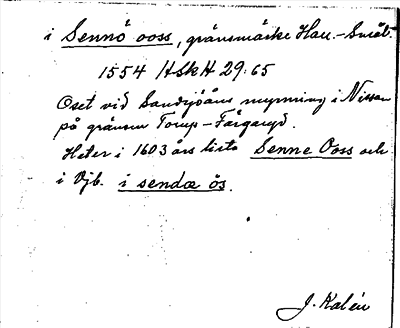 i Sennö ooss, gränsmärke Hall.-Smål.
1554 HSkH 29:65
Oset vid Sandsjöåns mynning i Nissan
på gränsen Torup-Färgaryd.
Heter i 1603 års lista Senne Ooss och
i Vjb. i sendæ ös.
J. Kalén